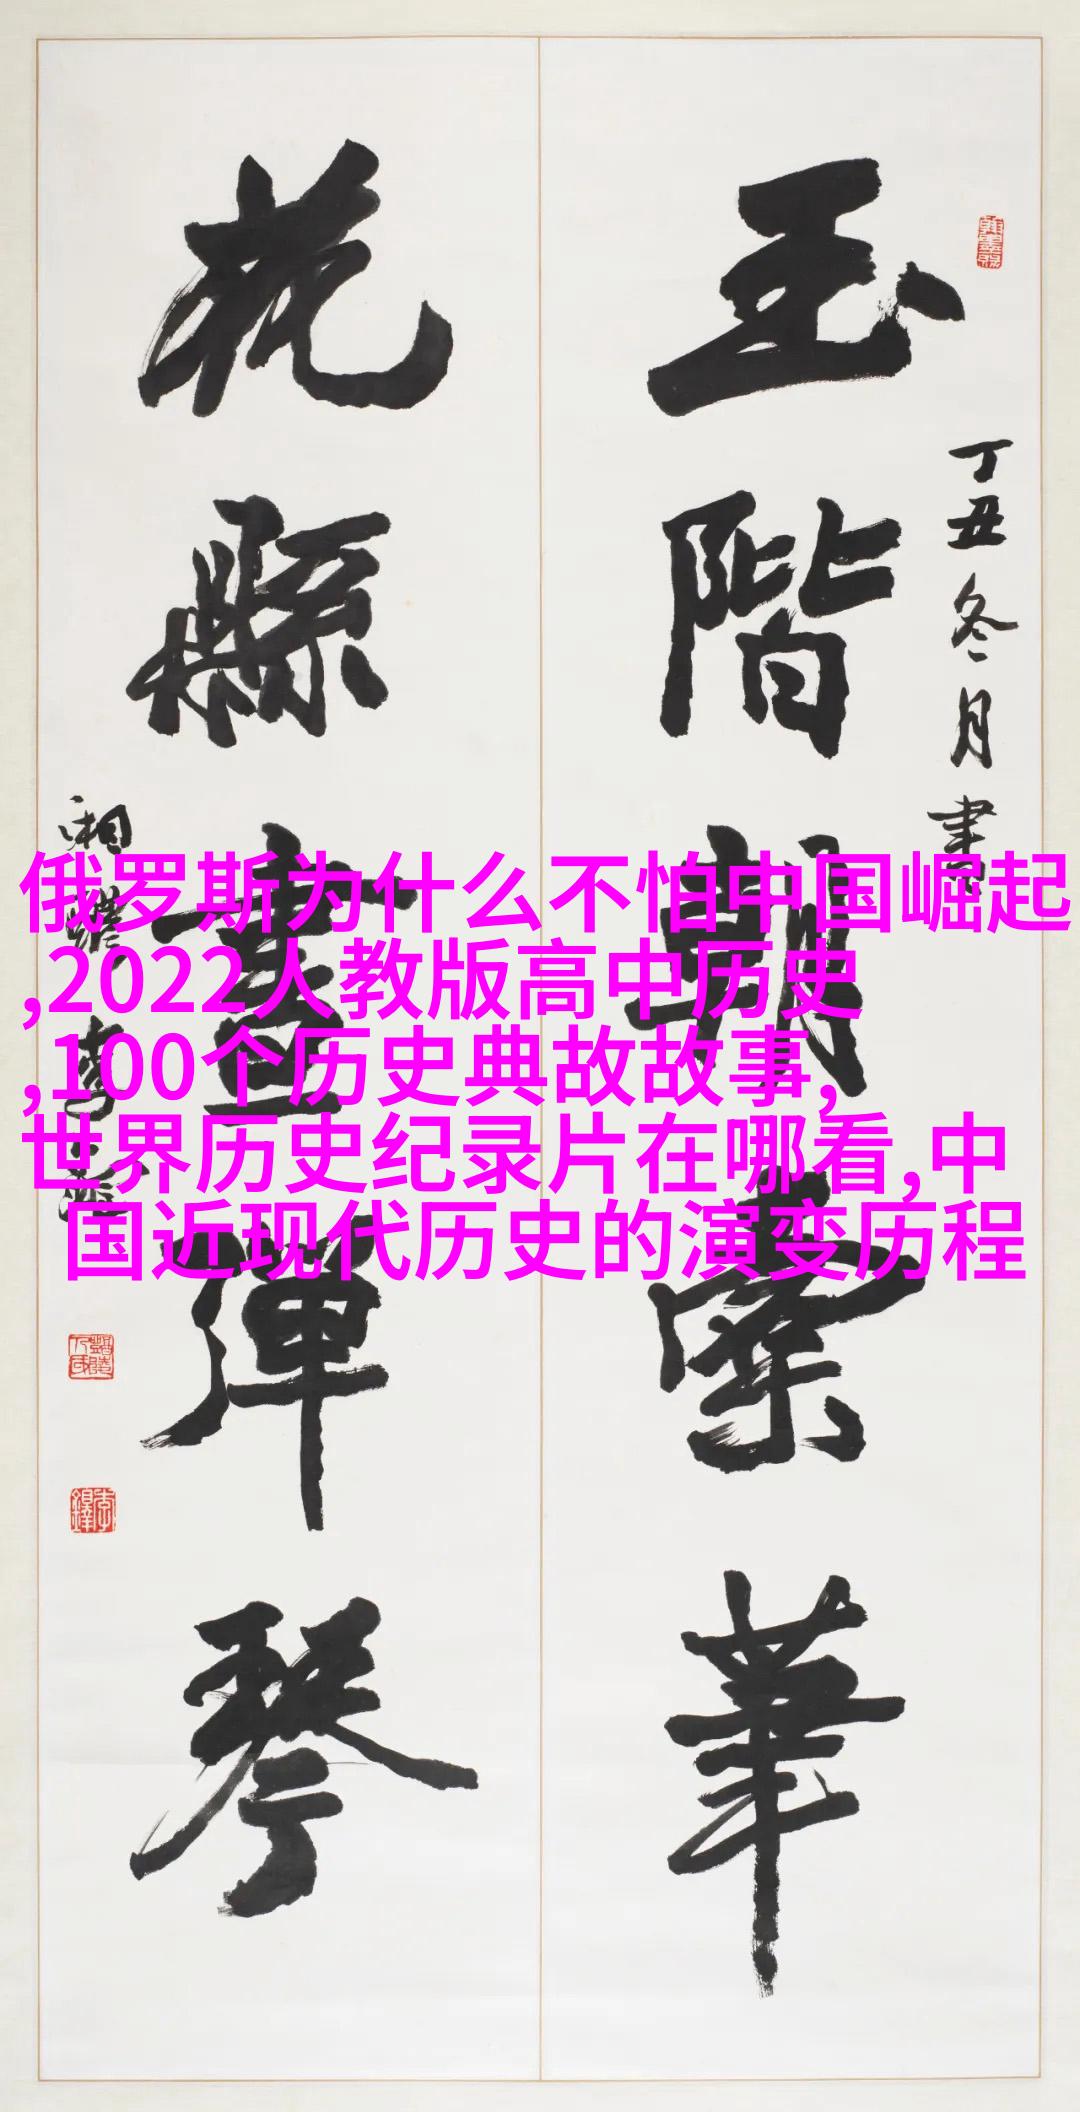 丁丑冬月書
玉階朝筆
花縣晝彈琴
湘潭李鐸
俄罗斯为什么不怕中国崛起
,2022人教版高中历史
,100个历史典故故事,
世界历史纪录片在哪看,中
国近现代历史的演变历程